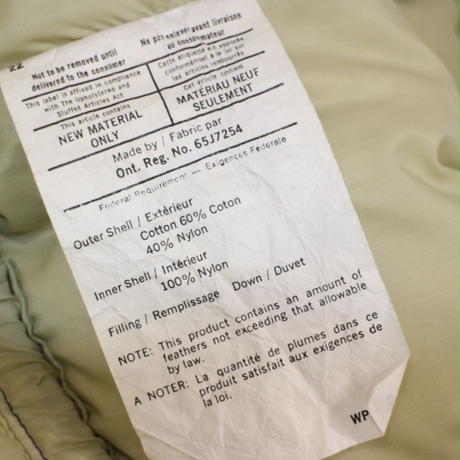 22
Not to be removed until
delivered to the consumer
Ne pas enlever avant livraison
au consommateur
This label is affixed in compliance
with The Upholstered and
Stuffed Articles Act
Cette étiquette est apposée
conformément à la loi sur
les articles rembourrés
This article contains
NEW MATERIAL
ONLY
Cet article contient
MATÉRIAU NEUF
SEULEMENT
Made by / Fabric par
Ont. Reg. No. 65J7254
Federal Requirement — Exigences Federale
Outer Shell / Extérieur
Cotton 60% Coton
40% Nylon
Inner Shell / Intérieur
100% Nylon
Filling / Remplissage Down / Duvet
NOTE: This product contains an amount of
feathers not exceeding that allowable
by law.
A NOTER: La quantité de plumes dans ce
produit satisfait aux exigences de
la loi.
WP